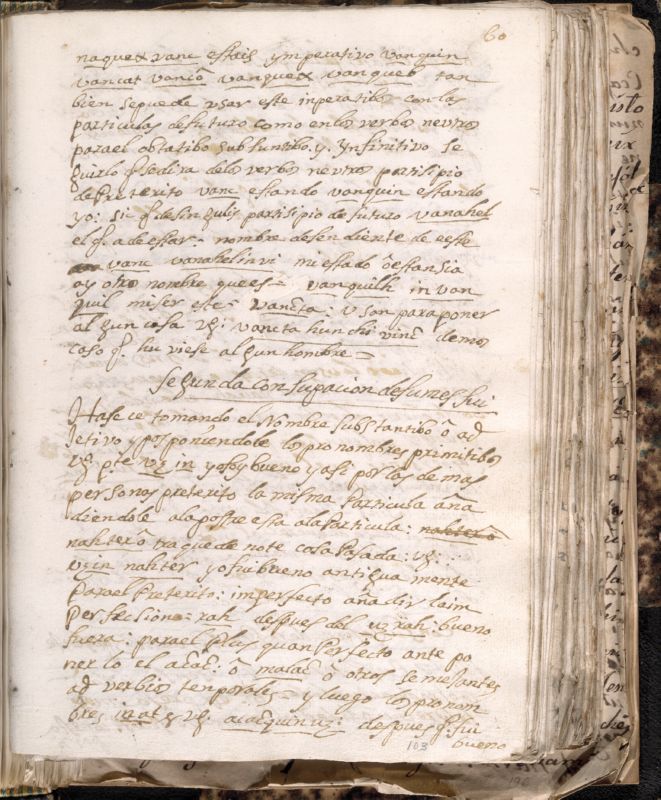 60
naquex vanc estais ymperativo vanquin
vancat vanco vanquex vanqueb tan
bien se puede usar este inperatibo con las
particulas de futuro como en los verbos neutros
para el obtatibo subjuntibo. y. ynfinitivo se
guirlo q̃ se dira de los verbos neutros partisipio
de Preterito vanc estando vanquin estando
yo: sic q̃ desingulis partisipio de futuro vanahel
el q̃. a de estar - nombre desendiente de este
vanc vanahelinvi mi estado ô estansia
ay otro nombre que es = vanquilh in van
quil miser este = vancta: usan para poner
algun casa vg: vancta hun chi vinc demos
caso q̃ hu viese algun hombre =
segunda conjugacion de sunes fui
Hase ce tomando el Nombre substantibo ô ad
jetivo y posponiendole los pronombres primitibos
vg pte uz in yo soy bueno y asi por las de mas
personas preterito la misma particula aña
diendole ala postre esta ala particula:
nahter o traquede note cosa Pasada: vg:
uz in nahter yo fui bueno antiguamente
Para el Preterito: imperfecto añadir laim
perfecsion: rah despues del uz rah: bueno
fuera: para el plus quan Perfecto ante po
nerlo el acac: ô malac ô otros semejantes
adverbios tenporales = y luego los pronon
bres in at & vg. acacquin uz: despues q̃ fui
103 bueno